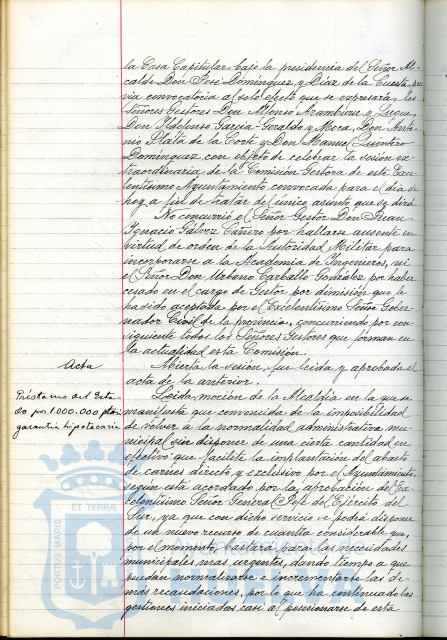 la Casa Capitular bajo la presidencia del Señor Al-
calde Don José Domínguez y Díaz de la Cuesta, pre-
via convocatoria al solo efecto que se expresará, los
Señores Gestores Don Alfonso Aramburu y Luque,
Don Ildefonso García Geraldo y Moca, Don Anto-
nio Plata de la Corte y Don Manuel Quintero
Domínguez con objeto de celebrar la sesión ex-
traordinaria de la Comisión Gestora de este Exce-
lentísimo Ayuntamiento convocada para el día de
hoy a fin de tratar del único asunto que se dirá
No concurrió el Señor Gestor Don Juan
Ignacio Gálvez Cañero por hallarse ausente en
virtud de orden de la Autoridad Militar para
incorporarse a la Academia de Ingenieros, ni
el Señor Don Urbano Carballo González por haber
cesado en el cargo de Gestor por dimisión que le
ha sido aceptada por el Excelentísimo Señor Gober-
nador Civil de la provincia, concurriendo por con-
siguiente todos los Señores Gestores que forman en
la actualidad esta Comisión.
Acta
Abierta la sesión, fue leída y aprobada el
acta de la anterior.
Préstamo del Esta-
do por 1.000.000 ptas
garantía hipotecaria
Leída moción de la Alcaldía en la que se
manifiesta que convencida de la imposibilidad
de volver a la normalidad administrativa mu-
nicipal sin disponer de una cierta cantidad en
efectivo que facilite la implantación del abasto
de carnes directo y exclusivo por el Ayuntamiento,
según está acordado por la aprobación del Ex-
celentísimo Señor General Jefe del Ejército del
Sur, ya que con dicho servicio se podrá disponer
de un nuevo recurso de cuantía considerable que,
por el momento, bastará para las necesidades
municipales mas urgentes, dando tiempo a que
puedan normalizarse e incrementarse las de-
mas recaudaciones, por lo que ha continuado las
gestiones iniciadas casi al posesionarse de esta
PORTUS MARIS
ET TERRÆ